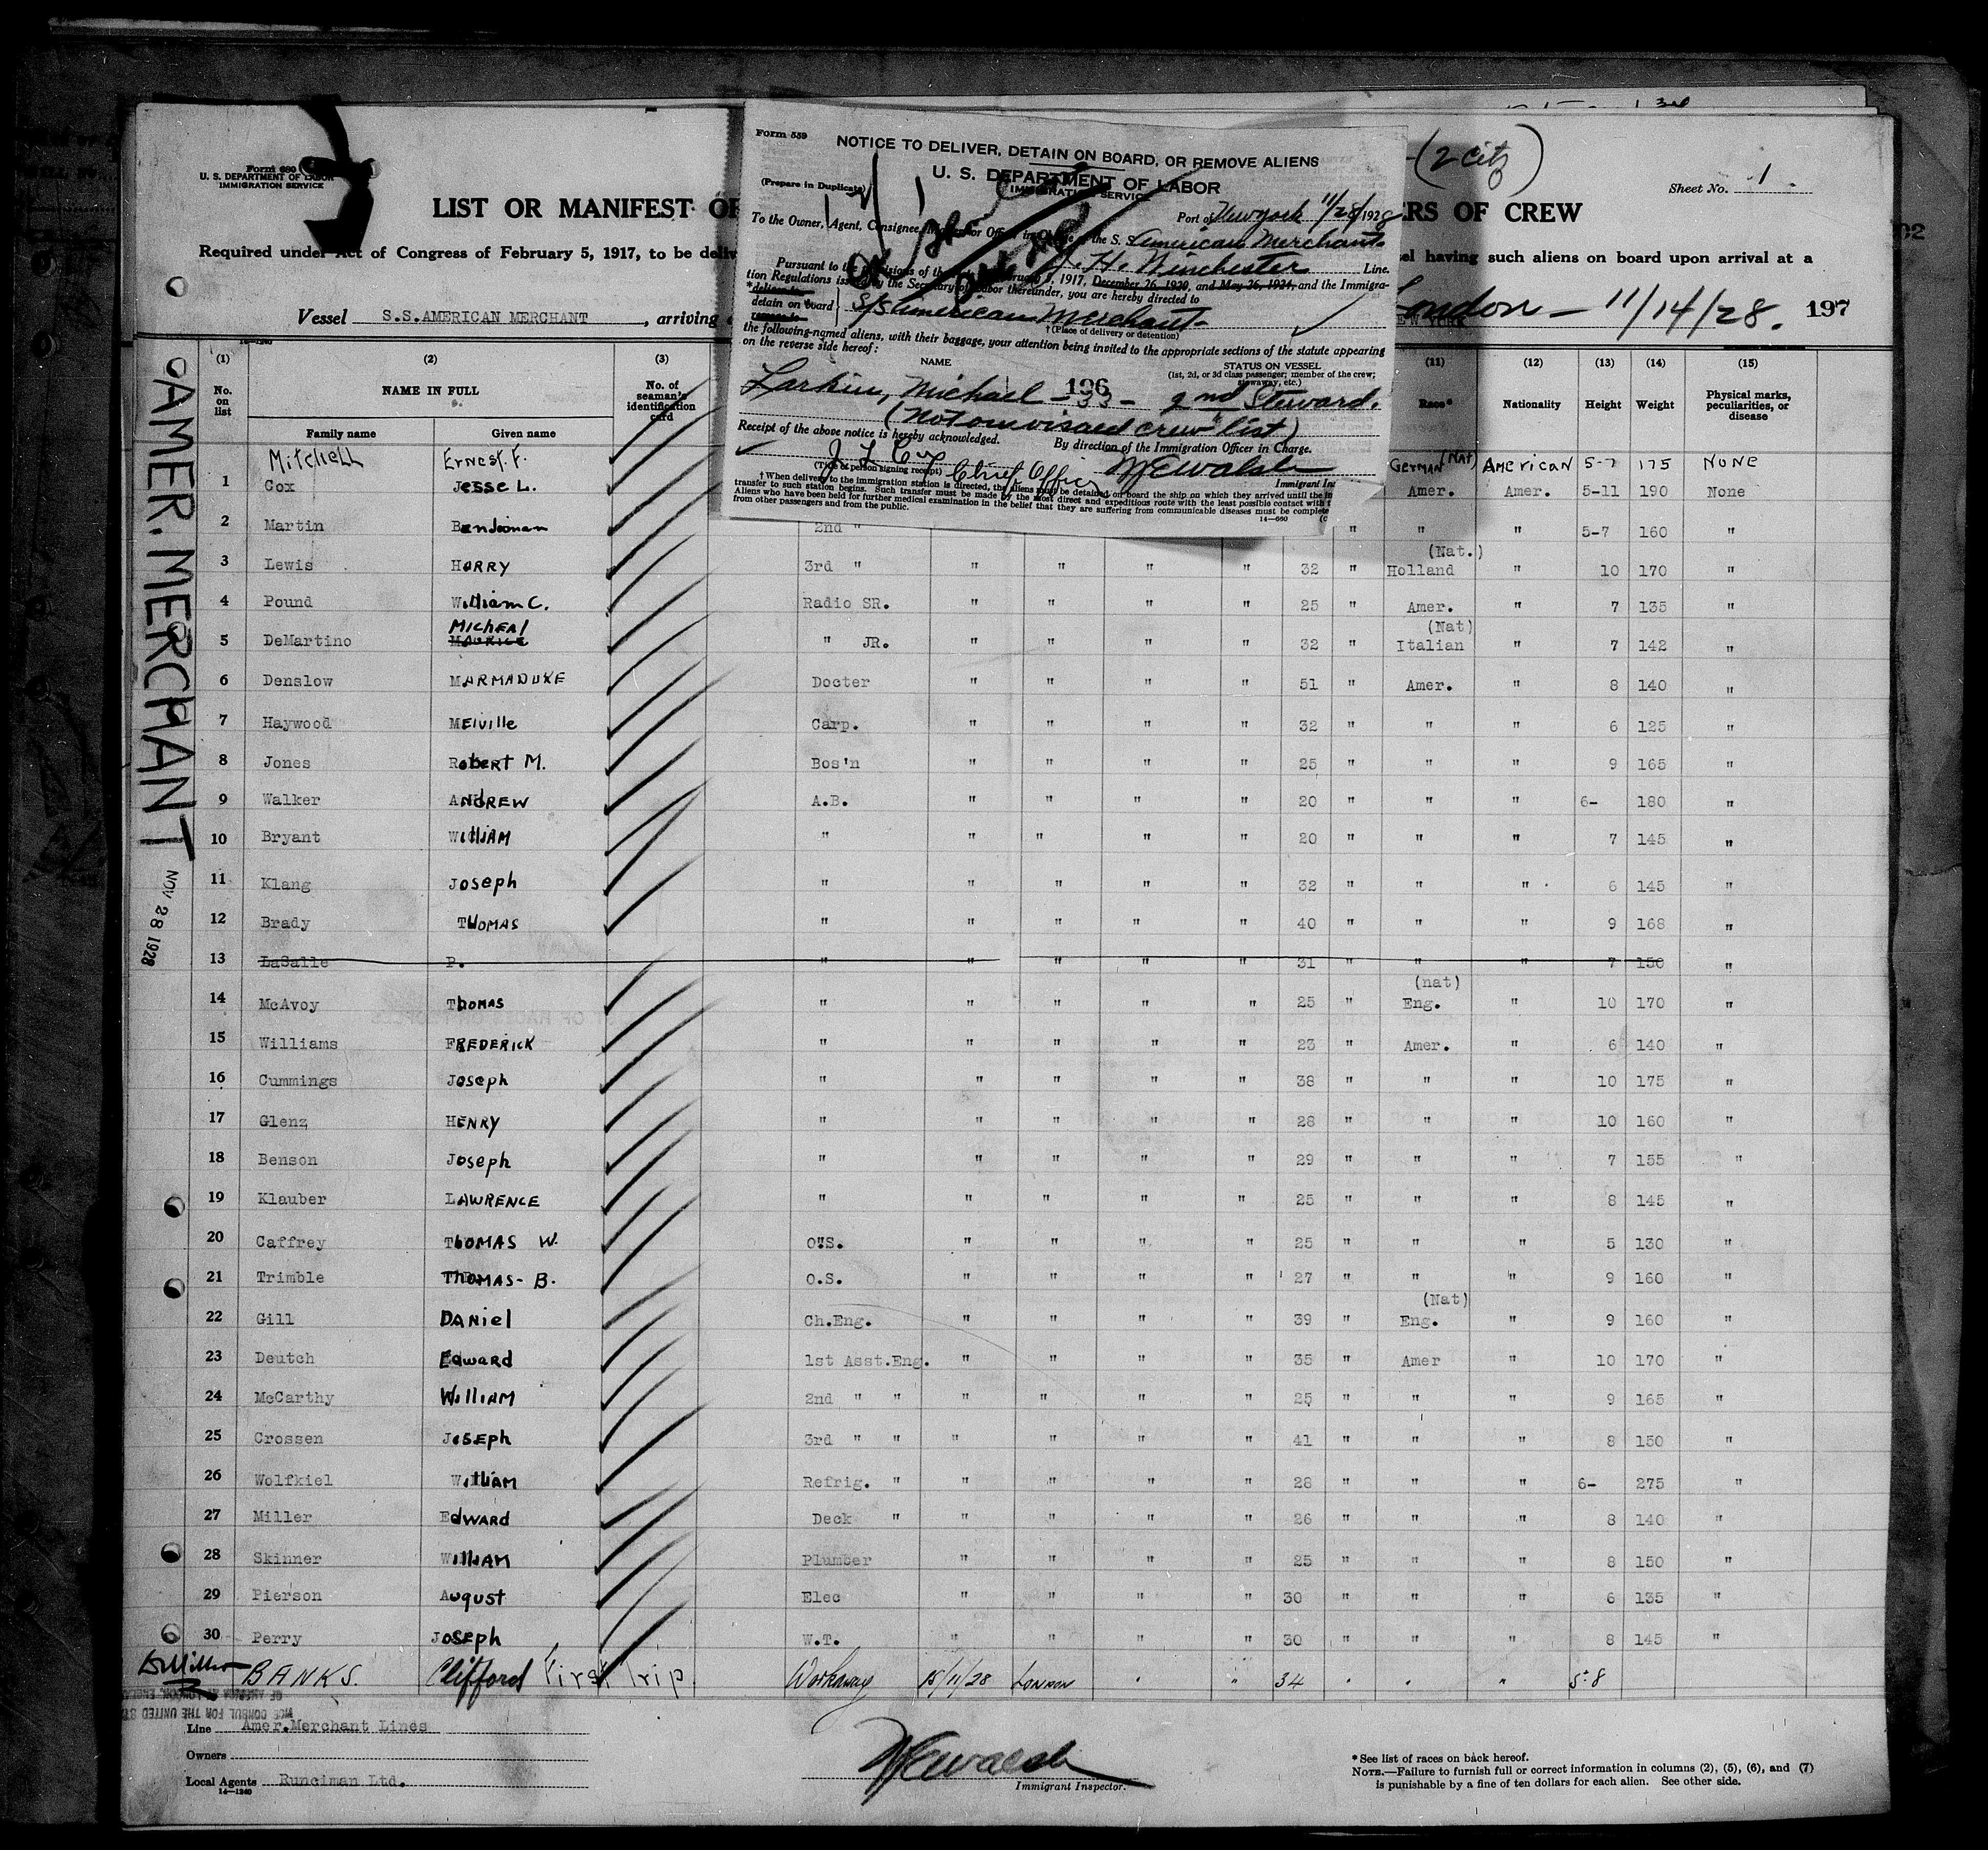 (2 Citz)
Form 680
U. S. DEPARTMENT OF LABOR
IMMIGRATION SERVICE
Sheet No. 1.
LIST OR MANIFEST OF
ERS OF CREW
Required under Act of Congress of February 5, 1917, to be deliv
el having such aliens on board upon arrival at a
Vessel S.S.AMERICAN MERCHANT, arriving
London - 11/14/28. 197
Form 559
NOTICE TO DELIVER, DETAIN ON BOARD, OR REMOVE ALIENS
U. S. DEPARTMENT OF LABOR
IMMIGRATION SERVICE
(Prepare in Duplicate)
Port of New York 11/28/1928
To the Owner, Agent, Consignee, Master or Officer in Charge of the S. S. American Merchant
J. H. Winchester Line.
Pursuant to the provisions of the Acts of February 5, 1917, December 26, 1920, and May 26, 1924, and the Immigra-
tion Regulations issued by the Secretary of Labor thereunder, you are hereby directed to
*deliver to
detain on board
remove to
S/S American Merchant
† (Place of delivery or detention)
the following-named aliens, with their baggage, your attention being invited to the appropriate sections of the statute appearing
on the reverse side hereof:
NAME
STATUS ON VESSEL
(1st, 2d, or 3d class passenger; member of the crew;
stowaway, etc.)
196
Larkin, Michael - 33 - 2nd Steward.
(Not on visaed crew list)
Receipt of the above notice is hereby acknowledged.
By direction of the Immigration Officer in Charge.
J L Cox Chief Officer
(Title of person signing receipt)
WEWalsh
Immigrant In
† When delivery to the immigration station is directed, the aliens must be detained on board the ship on which they arrived until the
transfer to such station begins. Such transfer must be made by the most direct and expeditious route with the least possible contact with
Aliens who have been held for further medical examination in the belief that they are suffering from communicable diseases must be complete
from other passengers and from the public.
14—660
AMER. MERCHANT
NOV 28 1928
14—1240
(1) (2) (3) (11) (12) (13) (14) (15)
No. on list NAME IN FULL No. of seaman's identification card Race* Nationality Height Weight Physical marks, peculiarities, or disease
Family name Given name
Mitchell Ernest. F. German (Nat) American 5-7 175 None
1 Cox Jesse L. Amer. Amer. 5-11 190 None
2 Martin Benjaman 2nd " " " " 5-7 160 "
3 Lewis Harry 3rd " " " " " 32 " (Nat.) Holland " 10 170 "
4 Pound William C. Radio SR. " " " " 25 " Amer. " 7 135 "
5 DeMartino Maurice Micheal " JR. " " " " 32 " (Nat) Italian " 7 142 "
6 Denslow MARMADUKE Docter " " " " 51 " Amer. " 8 140 "
7 Haywood Melville Carp. " " " " 32 " " " 6 125 "
8 Jones Robert M. Bos'n " " " " 25 " " " 9 165 "
9 Walker ANDREW A.B. " " " " 20 " " " 6- 180 "
10 Bryant William " " " " " 20 " " " 7 145 "
11 Klang Joseph " " " " " 32 " " " 6 145 "
12 Brady THOMAS " " " " " 40 " " " 9 168 "
13 LaSalle P. " " " " " 31 " " " 7 150 "
14 McAvoy Thomas " " " " " 25 " (nat) Eng. " 10 170 "
15 Williams FREDERICK " " " " " 23 " Amer. " 6 140 "
16 Cummings Joseph " " " " " 38 " " " 10 175 "
17 Glenz HENRY " " " " " 28 " " " 10 160 "
18 Benson Joseph " " " " " 29 " " " 7 155 "
19 Klauber LAWRENCE " " " " " 25 " " " 8 145 "
20 Caffrey THOMAS W. O.S. " " " " 25 " " " 5 130 "
21 Trimble THOMAS-B. O.S. " " " " 27 " " " 9 160 "
22 Gill DANiel Ch.Eng. " " " " 39 " (Nat) Eng. " 9 160 "
23 Deutch Edward 1st Asst.Eng. " " " " 35 " Amer " 10 170 "
24 McCarthy William 2nd " " " " " " 25 " " " 9 165 "
25 Crossen Joseph 3rd " " " " " " 41 " " " 8 150 "
26 Wolfkiel William Refrig. " " " " " 28 " " " 6- 275 "
27 Miller EdWARD Deck " " " " " 26 " " " 8 140 "
28 Skinner William Plumber " " " " 25 " " " 8 150 "
29 Pierson August Elec " " " " 30 " " " 6 135 "
30 Perry Joseph W.T. " " " " 30 " " " 8 145 "
BANKS. Clifford First Trip Workaway 15/11/28 London " " 34 " " " 5-8
VICE CONSUL FOR THE UNITED STA
Line Amer.Merchant Lines
Owners
Local Agents Runciman Ltd.
14—1240
WEWalsh
Immigrant Inspector.
* See list of races on back hereof.
NOTE.—Failure to furnish full or correct information in columns (2), (5), (6), and (7)
is punishable by a fine of ten dollars for each alien. See other side.